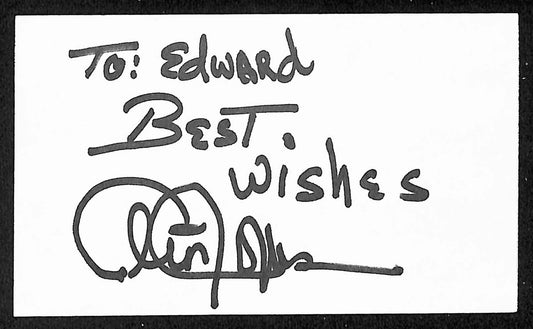 To: Edward
Best.
Wishes